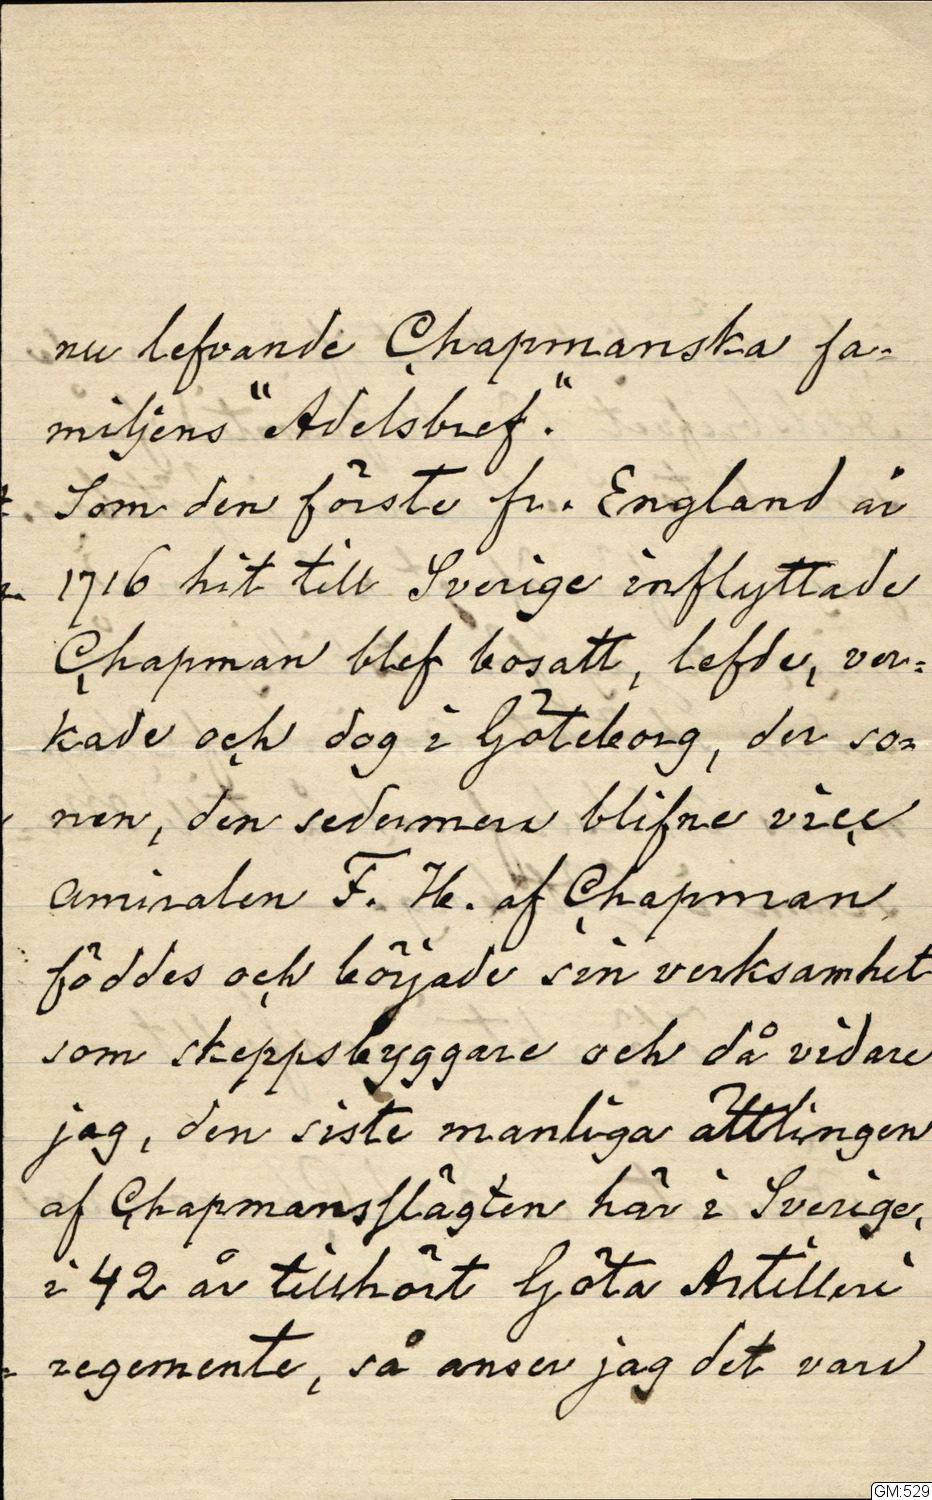 nu lefvande Chapmanska fa-
miljens "Adelsbref".
Som den förste fr. England år
1716 hit till Sverige inflyttade
Chapman blef bosatt, lefde, ver=
kade och dog i Göteborg, der so=
nen, den sedermera blifne vice
amiralen F. H. af Chapman
föddes och började sin verksamhet
som skeppsbyggare och då vidare
jag, den siste manliga ättlingen
af Chapmansslägten här i Sverige,
i 42 år tillhört Göta Artilleri
regemente, så anser jag det vara
GM:529